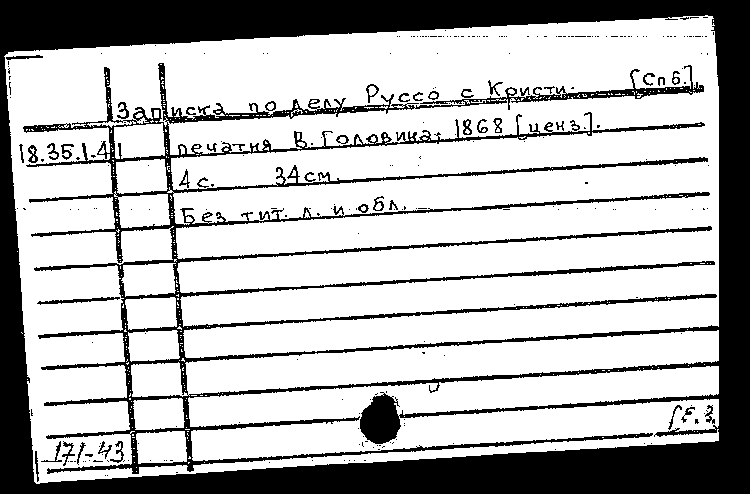 Записка по делу Руссо с Кристи. [Спб.],
18.35.1.41 печатня В. Головина, 1868 [ценз.].
4 с. 34 см.
Без тит. л. и обл.
[Е.З.
171-43